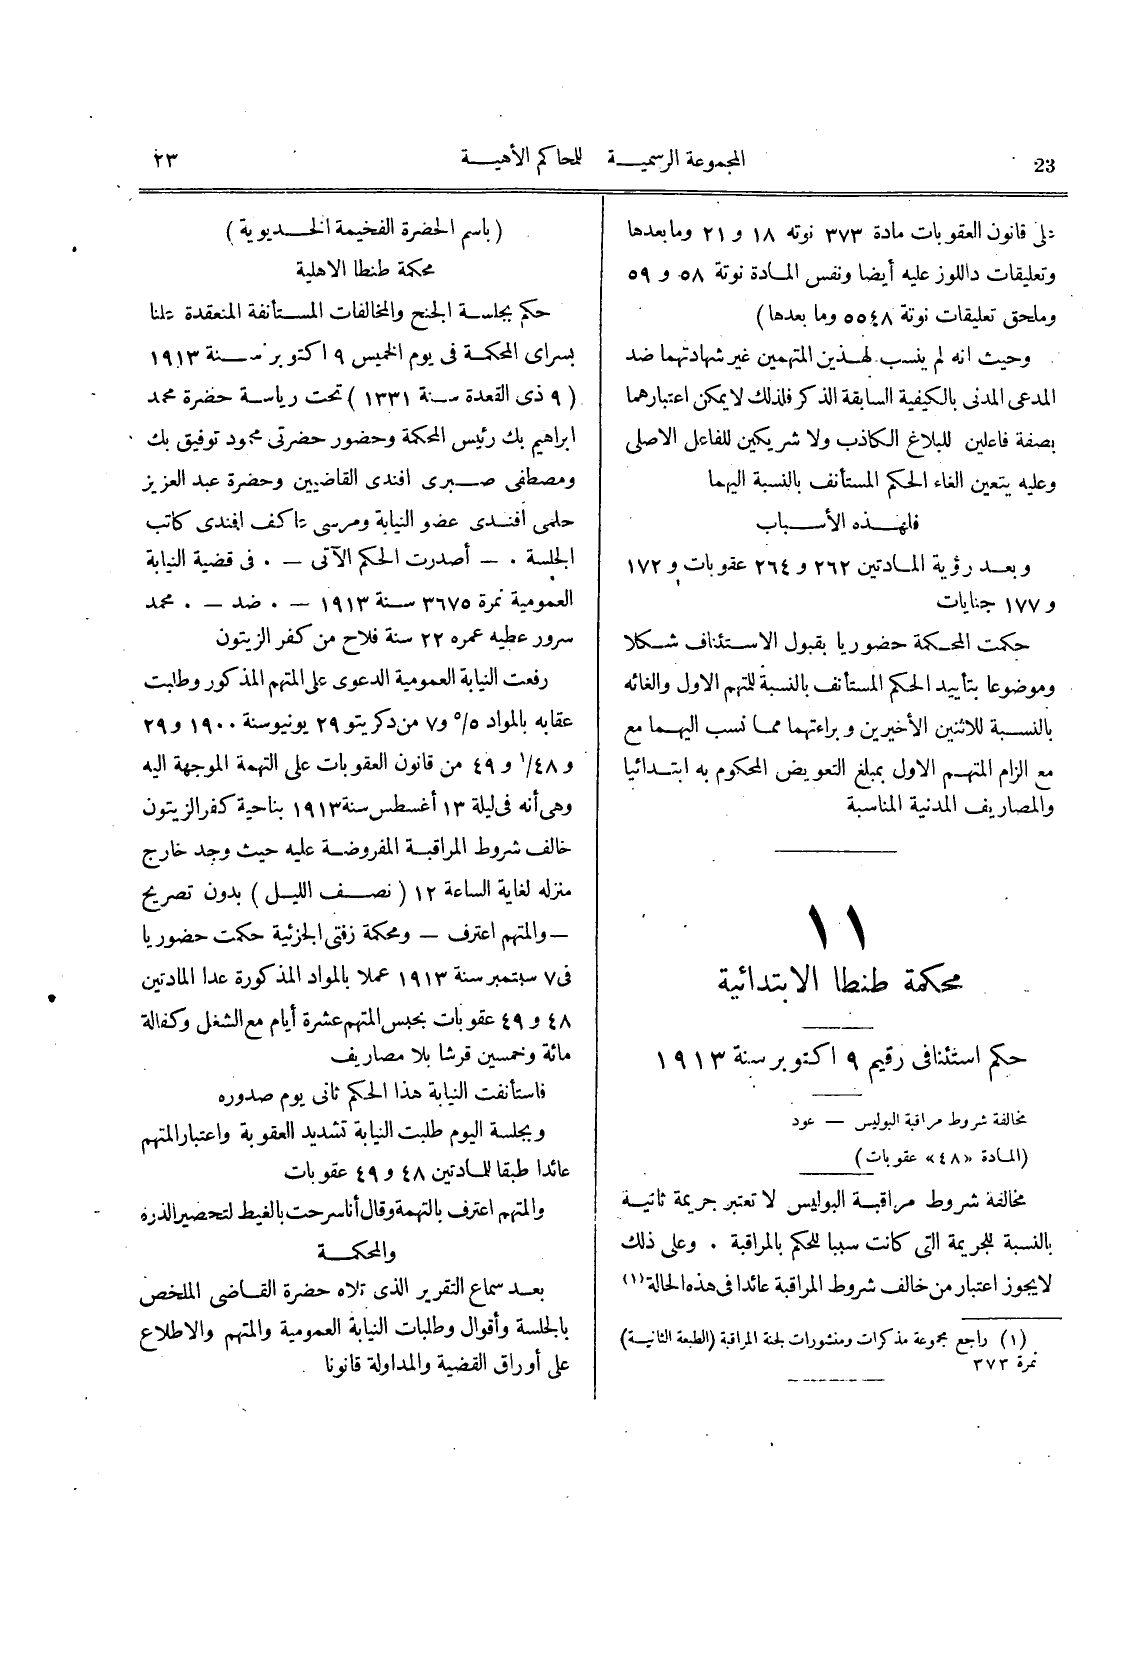 23 المجموعة الرسمية للمحاكم الأهلية ٢٣
على قانون العقوبات مادة ٣٧٣ نوته ١٨ و ٢١ ومابعدها
وتعليقات داللوز عليه أيضا ونفس المادة نوتة ٥٨ و ٥٩
وملحق تعليقات نوتة ٥٥٤٨ وما بعدها)
وحيث انه لم ينسب لهذين المتهمين غير شهادتهما ضد
المدعى المدنى بالكيفية السابقة الذكر فلذلك لايمكن اعتبارهما
بصفة فاعلين للبلاغ الكاذب ولا شريكين للفاعل الاصلى
وعليه يتعين الغاء الحكم المستأنف بالنسبة اليهما
فلهذه الأسباب
وبعد رؤية المادتين ٢٦٢ و ٢٦٤ عقوبات و ١٧٢
و ١٧٧ جنايات
حكمت المحكمة حضوريا بقبول الاستئناف شكلا
وموضوعا بتأييد الحكم المستأنف بالنسبة للمتهم الاول والغائه
بالنسبة للاثنين الأخيرين وبراءتهما مما نسب اليهما مع
مع الزام المتهم الاول بمبلغ التعويض المحكوم به ابتدائيا
والمصاريف المدنية المناسبة
١١
محكمة طنطا الابتدائية
حكم استئنافى رقيم ٩ اكتوبر سنة ١٩١٣
مخالفة شروط مراقبة البوليس — عود
(المادة «٤٨» عقوبات)
مخالفة شروط مراقبة البوليس لا تعتبر جريمة ثانية
بالنسبة للجريمة التى كانت سببا للحكم بالمراقبة . وعلى ذلك
لايجوز اعتبار من خالف شروط المراقبة عائدا فى هذه الحالة (١)
(١) راجع مجموعة مذكرات ومنشورات لجنة المراقبة (الطبعة الثانية)
نمرة ٣٧٣
(باسم الحضرة الفخيمة الخديوية)
محكمة طنطا الاهلية
حكم بجلسة الجنح والمخالفات المستأنفة المنعقدة علنا
بسراى المحكمة فى يوم الخميس ٩ اكتوبر سنة ١٩١٣
(٩ ذى القعدة سنة ١٣٣١) تحت رياسة حضرة محمد
ابراهيم بك رئيس المحكمة وحضور حضرتى محمود توفيق بك
ومصطفى صبرى افندى القاضيين وحضرة عبد العزيز
حلمى أفندى عضو النيابة ومرسى عاكف افندى كاتب
الجلسة . — أصدرت الحكم الآتى — . فى قضية النيابة
العمومية نمرة ٣٦٧٥ سنة ١٩١٣ — . ضد — . محمد
سرور عطيه عمره ٢٢ سنة فلاح من كفر الزيتون
رفعت النيابة العمومية الدعوى على المتهم المذكور وطلبت
عقابه بالمواد ٥/٥ و٧ من دكريتو ٢٩ يونيو سنة ١٩٠٠ و ٢٩
و ٤٨/١ و ٤٩ من قانون العقوبات على التهمة الموجهة اليه
وهى أنه فى ليلة ١٣ أغسطس سنة ١٩١٣ بناحية كفر الزيتون
خالف شروط المراقبة المفروضة عليه حيث وجد خارج
منزله لغاية الساعة ١٢ (نصف الليل) بدون تصريح
— والمتهم اعترف — ومحكمة زفتى الجزئية حكمت حضوريا
فى ٧ سبتمبر سنة ١٩١٣ عملا بالمواد المذكورة عدا المادتين
٤٨ و ٤٩ عقوبات بحبس المتهم عشرة أيام مع الشغل وكفالة
مائة وخمسين قرشا بلا مصاريف
فاستأنفت النيابة هذا الحكم ثانى يوم صدوره
وبجلسة اليوم طلبت النيابة تشديد العقوبة واعتبار المتهم
عائدا طبقا للمادتين ٤٨ و ٤٩ عقوبات
والمتهم اعترف بالتهمة وقال أنا سرحت بالغيط لتحضير الذره
والمحكمة
بعد سماع التقرير الذى تلاه حضرة القاضى الملخص
بالجلسة وأقوال وطلبات النيابة العمومية والمتهم والاطلاع
على أوراق القضية والمداولة قانونا